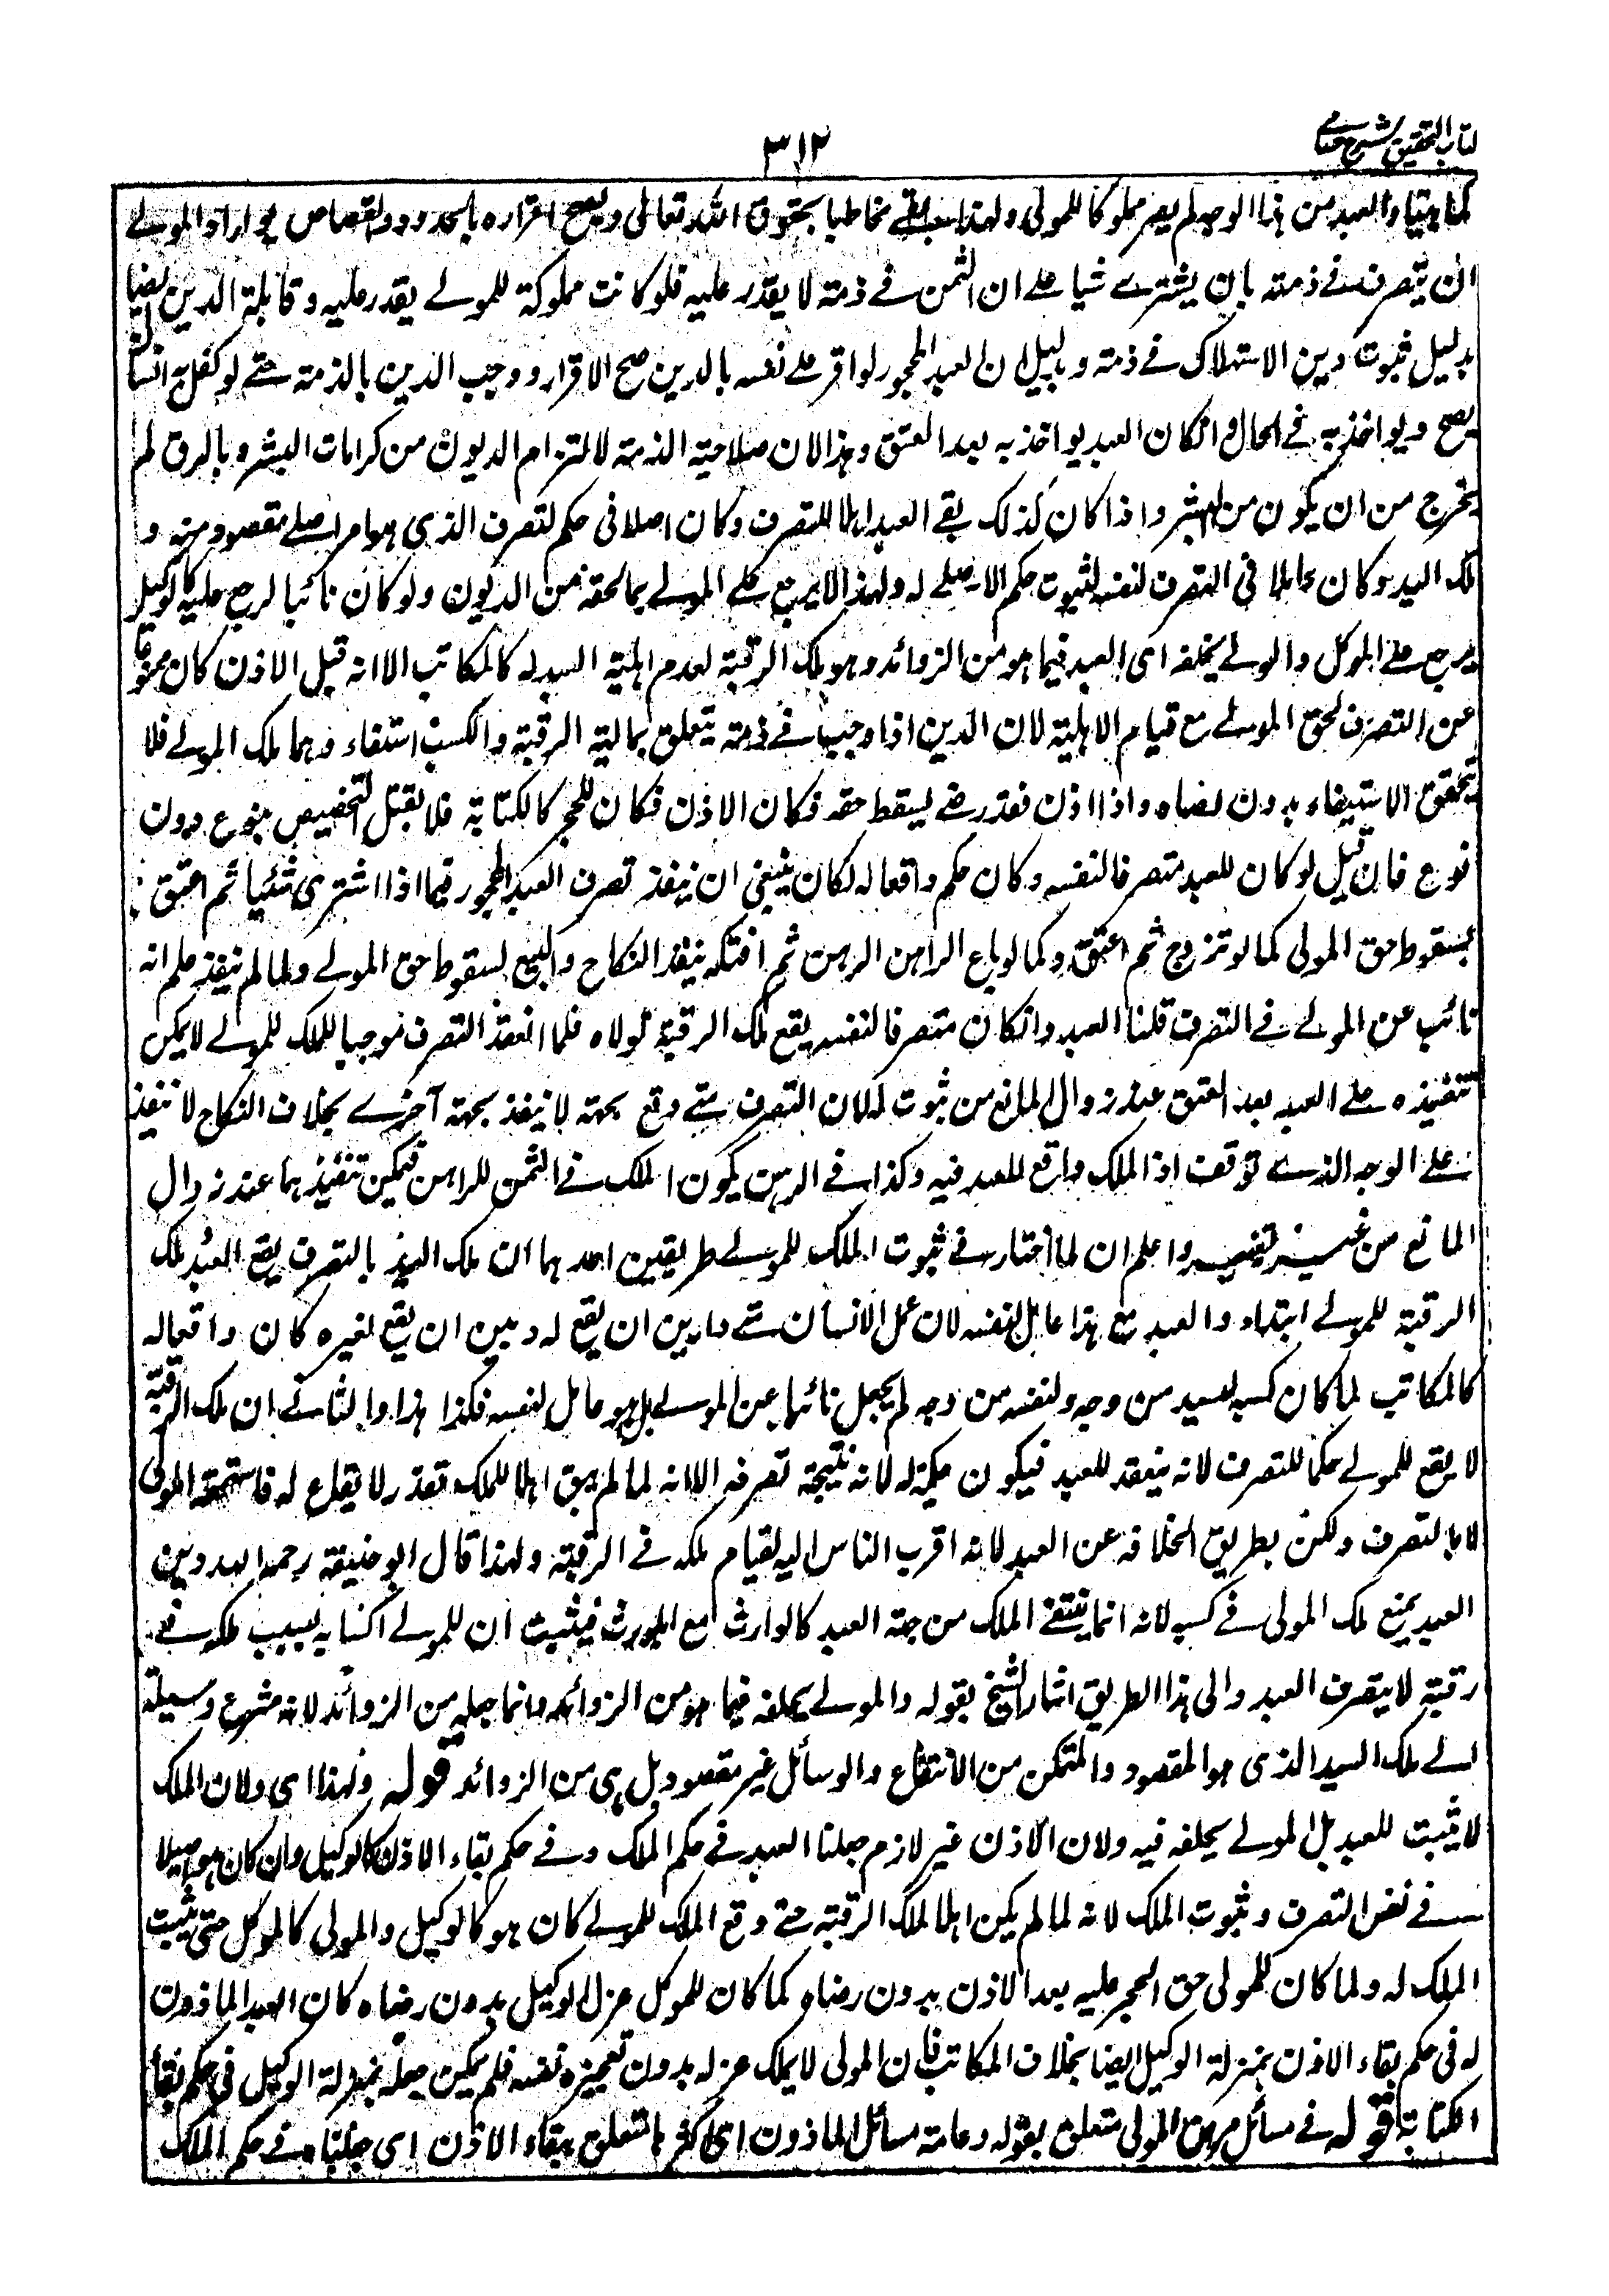 كتاب التحقيق شرح حسامي
٣١٢
كما بينا والعبد من هذا الوجه لم يصر مملوكا للمولى ولهذا بقى مخاطبا بحقوق الله تعالى ويصح اقراره بالحدود والقصاص ولو اراد المولى
ان يتصرف فى ذمته بان يشترى شيا على ان الثمن فى ذمته لا يقدر عليه فلو كانت مملوكة للمولى يقدر عليه وقابلة الدين ايضا
بدليل ثبوت دين الاستهلاك فى ذمته وبدليل ان العبد المحجور لو اقر على نفسه بالدين صح الاقرار ووجب الدين بالذمة حتى لو كفل به انسان
يصح ويواخذ به فى الحال وانكان العبد يواخذ به بعد العتق وهذا لان صلاحية الذمة لالتزام الديون من كرامات البشر وبالرق لم
يخرج من ان يكون من البشر واذا كان كذلك بقى العبد اهلا للتصرف وكان اصلا فى حكم التصرف الذى هو امر اصلى مقصود منه و
ملك اليد وكان عاملا فى التصرف لنفسه لثبوت حكم الاصلى له ولهذا لا يرجع على المولى بما لحقه من الديون ولو كان نائبا لرجع عليه كالوكيل
يرجع على الموكل والمولى يخلفه اى العبد فيما هو من الزوائد وهو ملك الرقبة لعدم اهلية العبد له كالمكاتب الا انه قبل الاذن كان ممنوعا
عن التصرف لحق المولى مع قيام الاهلية لان الدين اذا وجب فى ذمته يتعلق بمالية الرقبة والكسب استيفاء وهما ملك المولى فلا
يتحقق الاستيفاء بدون رضاه واذا اذن فقد رضى بسقوط حقه فكان الاذن فكا للحجر كالكتابة فلا يقبل التخصيص بنوع دون
نوع فان قيل لو كان للعبد متصرفا لنفسه وكان حكم واقعا له لكان ينبغى ان ينفذ تصرف العبد المحجور فيما اذا اشترى شئيا ثم اعتق
بسقوط حق المولى كما لو تزوج ثم اعتق وكما لو باع الراهن الرهن ثم افتكه ينفذ النكاح والبيع لسقوط حق المولى ولما لم ينفذ علم انه
نائب عن المولى فى التصرف قلنا العبد وانكان متصرفا لنفسه يقع ملك الرقبة لمولاه فلما انعقد التصرف موجبا للملك للمولى لا يمكن
تنفيذه على العبد بعد العتق عند زوال المانع من ثبوت له لان التصرف متى وقع بجهة لا ينفذ بجهة آخرى بخلاف النكاح لا ينفذ
على الوجه الذى توقف اذ الملك واقع للعبد فيه وكذا فى الرهن يكون الملك فى الثمن للراهن فيمكن تنفيذهما عند زوال
المانع من غير تغيير واعلم ان لما اختار فى ثبوت الملك للمولى طريقين احدهما ان ملك اليد بالتصرف يقع للعبد وملك
الرقبة للمولى ابتداء والعبد مع هذا عامل لنفسه لان عمل الانسان متى دار بين ان يقع له وبين ان يقع لغيره كان واقعا له
كالمكاتب لما كان كسبه لسيده من وجه ولنفسه من وجه لم يجعل نائبا عن المولى بل هو عامل لنفسه فكذا هذا والثانى ان ملك الرقبة
لا يقع للمولى حكما للتصرف لانه ينعقد للعبد فيكون حكمه له لانه نتيجة تصرفه الا انه لما لم يبق اهلا للملك تعذر لا يقاع له فاستحقه المولى
لا بالتصرف ولكن بطريق الخلافة عن العبد لانه اقرب الناس اليه لقيام ملكه فى الرقبة ولهذا قال ابو حنيفة رحمه الله دين
العبد يمنع ملك المولى فى كسبه لانه انما يتلقى الملك من جهة العبد كالوارث مع المورث فيثبت ان للمولى اكسابه بسبب ملكه فى
رقبته لا بتصرف العبد والى هذا الطريق اشار الشيخ بقوله والمولى يخلفه فيما هو من الزوائد وانما جعله من الزوائد لانه مشروع وسيلة
الى ملك اليد الذى هو المقصود والمتمكن من الانتفاع والوسائل غير مقصودة بل هى من الزوائد قوله ولهذا اى ولان الملك
لا يثبت للعبد بل المولى يخلفه فيه ولان الاذن غير لازم جعلنا العبد فى حكم الملك وفى حكم بقاء الاذن كالوكيل وان كان هو اصيلا
فى نفس التصرف وثبوت الملك لانه لما لم يكن اهلا لملك الرقبة حتى وقع الملك للمولى كان هو كالوكيل والمولى كالموكل حتى يثبت
الملك له ولما كان للمولى حق الحجر عليه بعد الاذن بدون رضاه كما كان للموكل عزل الوكيل بدون رضاه كان العبد الماذون
له فى حكم بقاء الاذن بمنزلة الوكيل ايضا بخلاف المكاتب فان المولى لا يملك عزله بدون تعجيزه نفسه فلم يمكن جعله بمنزلة الوكيل فى حكم بقاء
الكتابة قوله فى مسائل مرض المولى متعلق بقوله وعامة مسائل الماذون اى اكثرها متعلق ببقاء الاذن اى جعلناه فى حكم الملك